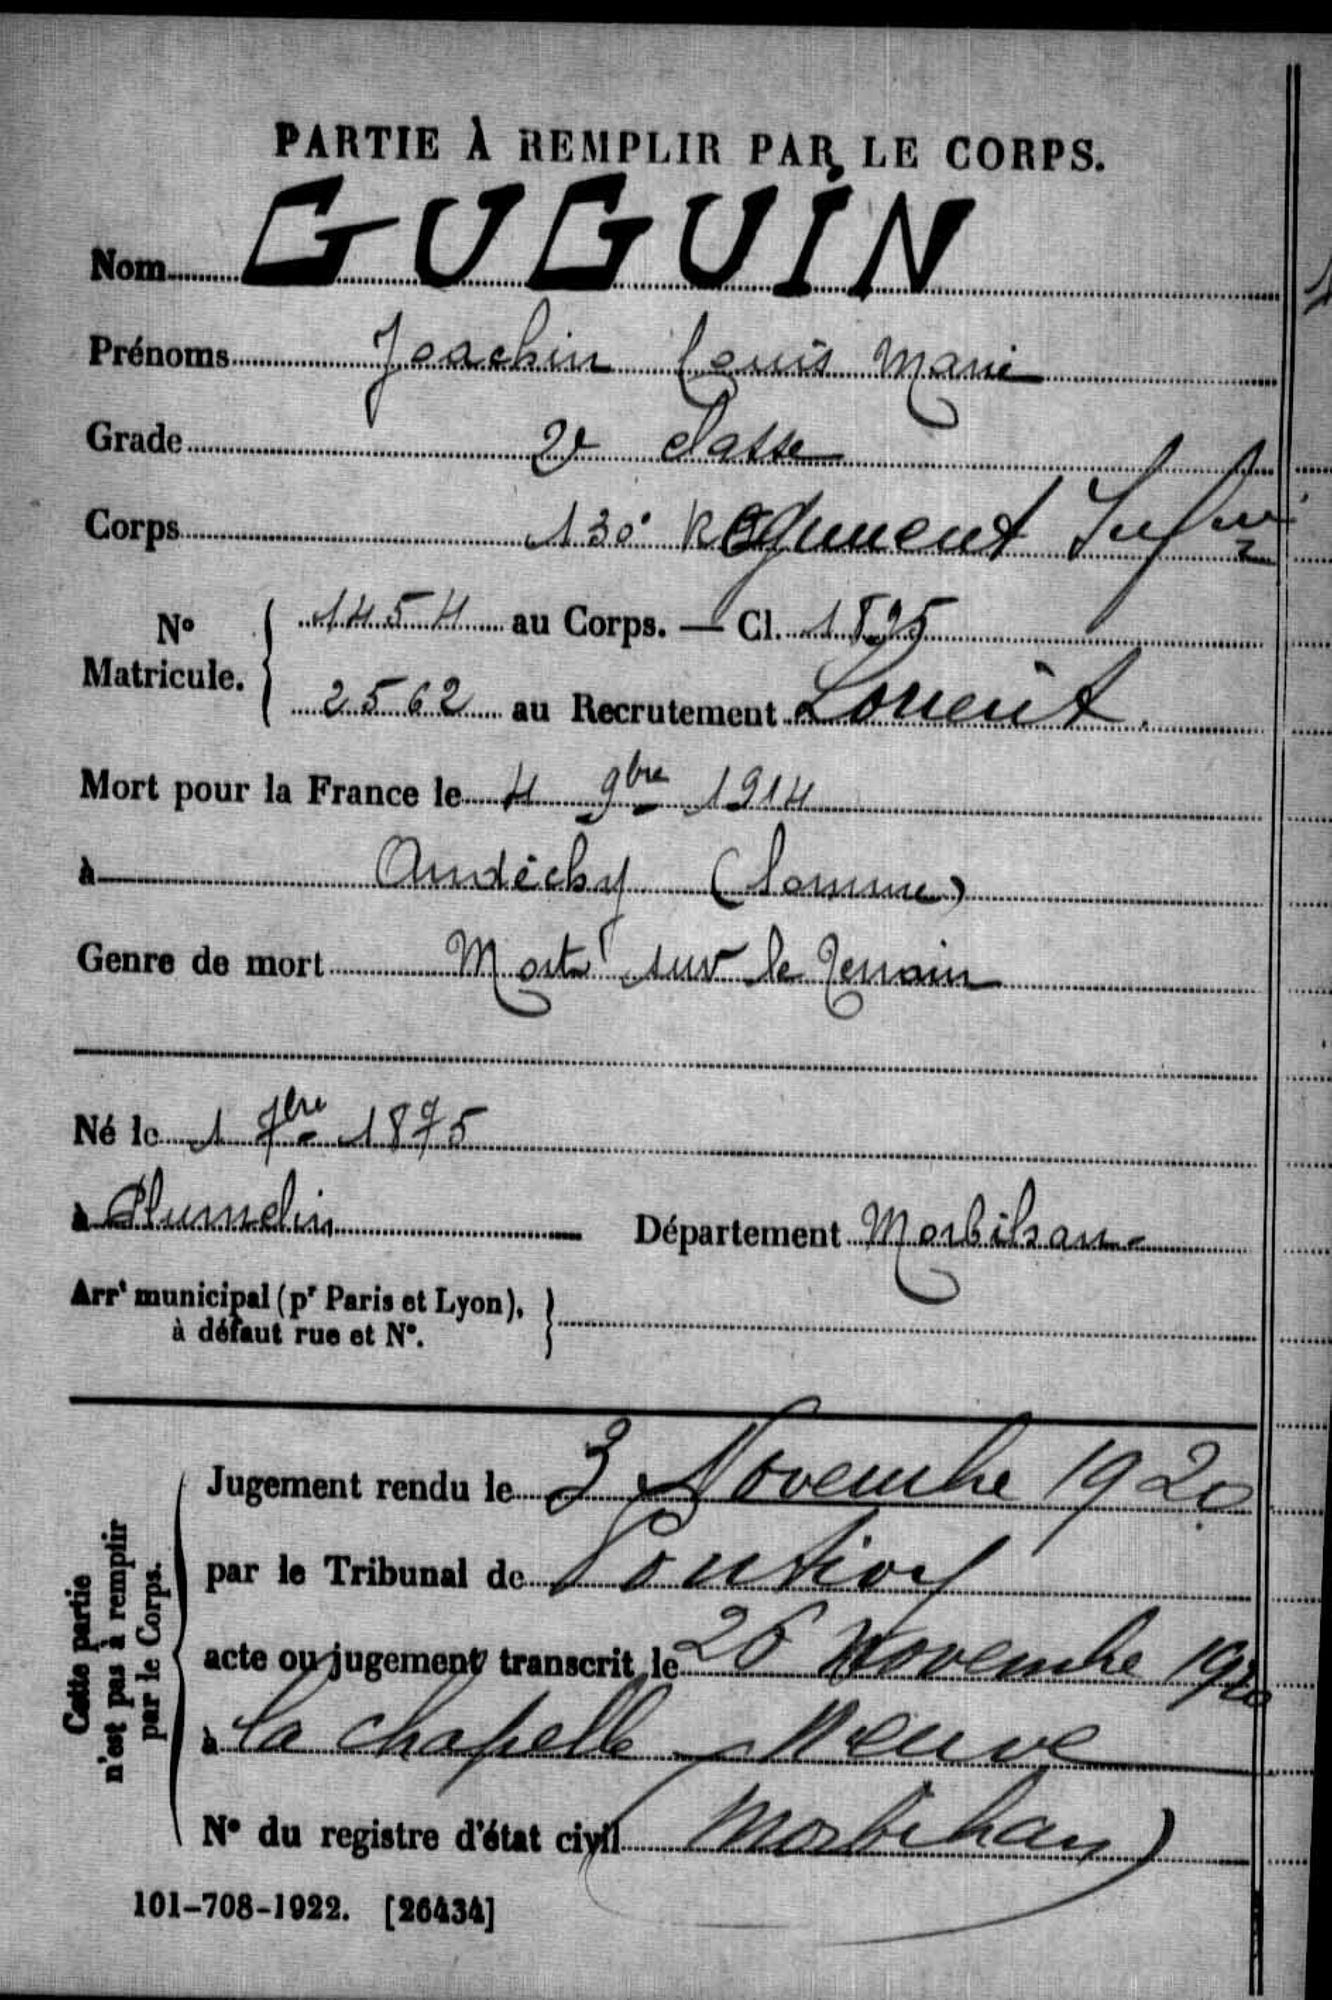 PARTIE À REMPLIR PAR LE CORPS.
Nom GUGUIN
Prénoms Joachin Louis Marie
Grade 2e classe
Corps 130e Régiment Infie
No Matricule. { 1454 au Corps. — Cl. 1895
2562 au Recrutement Lorient.
Mort pour la France le 4 9bre 1914
à Andéchy (Somme)
Genre de mort Mort sur le Terrain
Né le 1 7bre 1875
à Plumelin Département Morbihan
Arrt municipal (pr Paris et Lyon),
à défaut rue et No.
Cette partie
n'est pas à remplir
par le Corps.
Jugement rendu le 3 Novembre 1920
par le Tribunal de Pontivy
acte ou jugement transcrit le 26 Novembre 1920
à la chapelle Neuve
No du registre d'état civil (Morbihan)
101-708-1922. [26434]